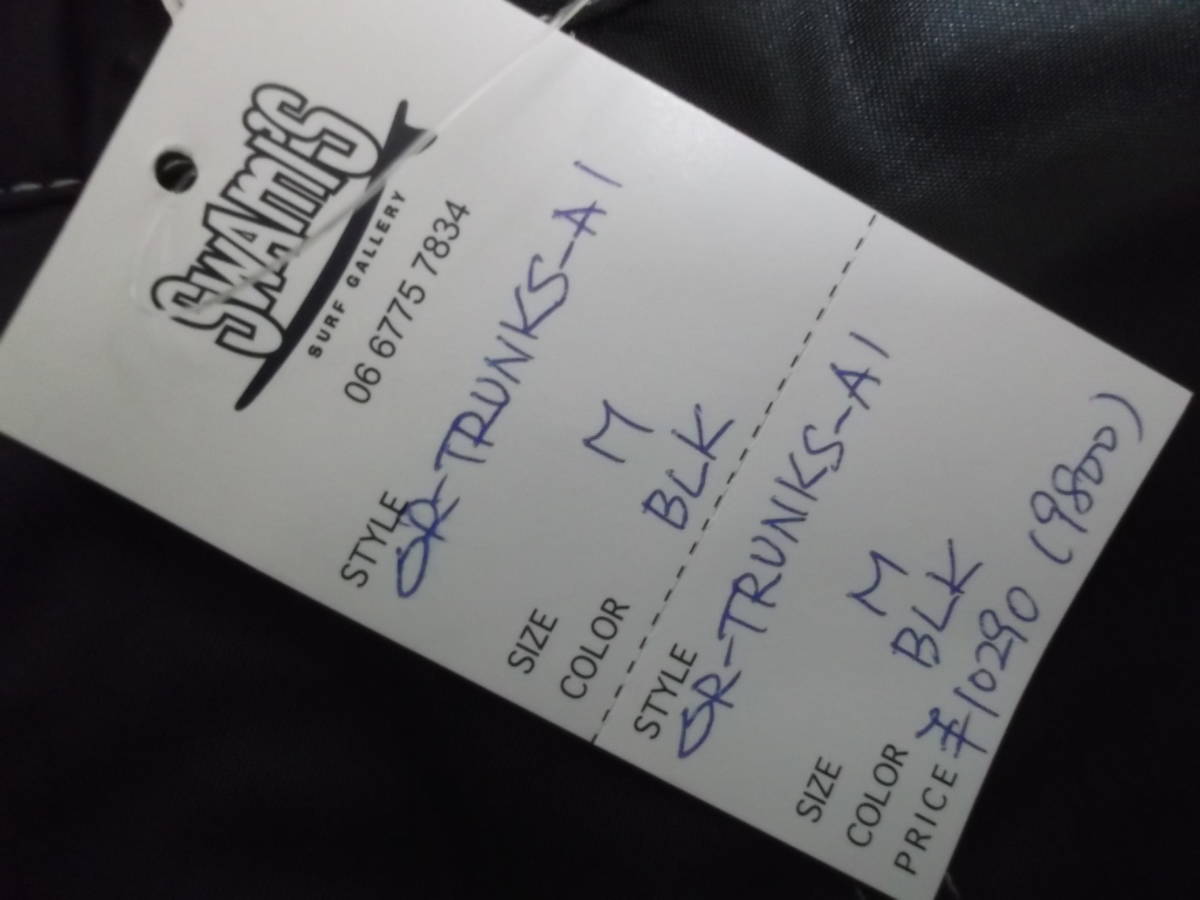 SWAMI'S
SURF GALLERY
06 6775 7834
STYLE
OR-TRUNKS-A1
SIZE M
COLOR BLK
STYLE
OR-TRUNKS-A1
SIZE M
COLOR BLK
PRICE ¥10290 (9800)